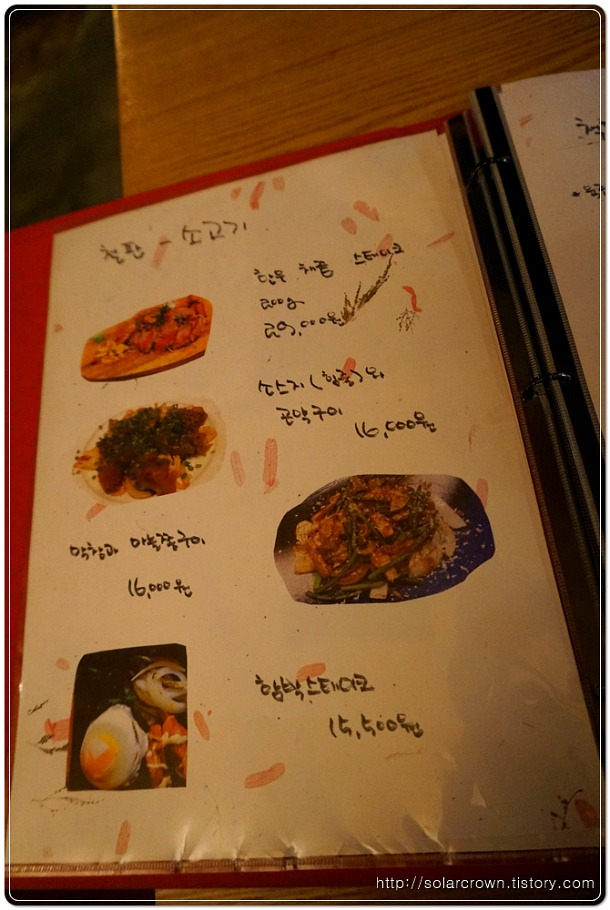 철판 - 소고기
한우 채끝 스테이크
200g
29,000원
소스지(힘줄)와
곤약구이
16,500원
막창과 마늘쫑구이
16,000원
함박스테이크
15,500원
http://solarcrown.tistory.com